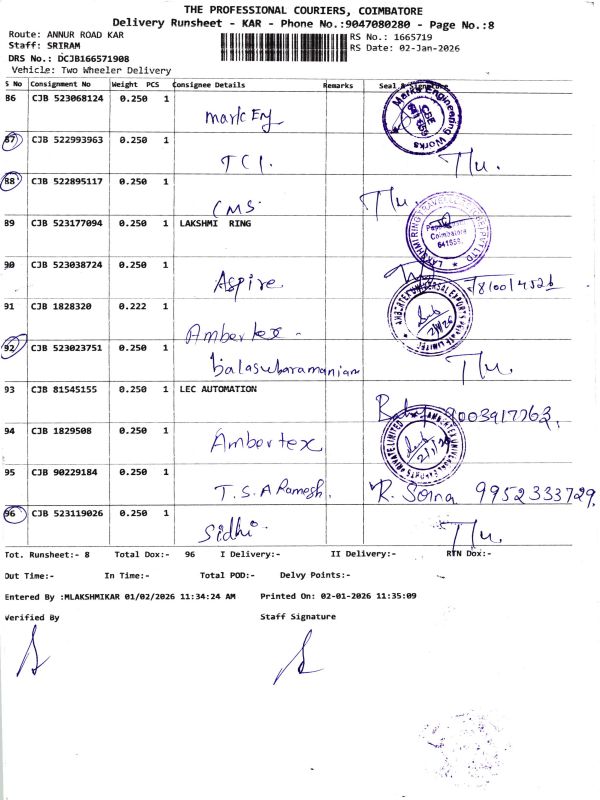 THE PROFESSIONAL COURIERS, COIMBATORE
Delivery Runsheet - KAR - Phone No.:9047080280 - Page No.:8
Route: ANNUR ROAD KAR
RS No.: 1665719
Staff: SRIRAM
RS Date: 02-Jan-2026
DRS No.: DCJB166571908
Vehicle: Two Wheeler Delivery
S No Consignment No Weight PCS Consignee Details Remarks Seal & Signature
86 CJB 523068124 0.250 1 Mark Eng
Marks Engineering Works
CBE
641659
87 CJB 522993963 0.250 1 TCI
88 CJB 522895117 0.250 1 CMS
89 CJB 523177094 0.250 1 LAKSHMI RING
Coimbatore
90 CJB 523038724 0.250 1 Aspire
91 CJB 1828320 0.222 1 Ambertex
92 CJB 523023751 0.250 1 balasubaramaniam
93 CJB 81545155 0.250 1 LEC AUTOMATION
9003917763
94 CJB 1829508 0.250 1 Ambertex
95 CJB 90229184 0.250 1 T.S.A Ramesh. R. Sona 9952333729
96 CJB 523119026 0.250 1 Sidhi
Tot. Runsheet:- 8 Total Dox:- 96 I Delivery:- II Delivery:- RTN Dox:-
Out Time:- In Time:- Total POD:- Delvy Points:-
Entered By :MLAKSHMIKAR 01/02/2026 11:34:24 AM Printed On: 02-01-2026 11:35:09
Verified By Staff Signature